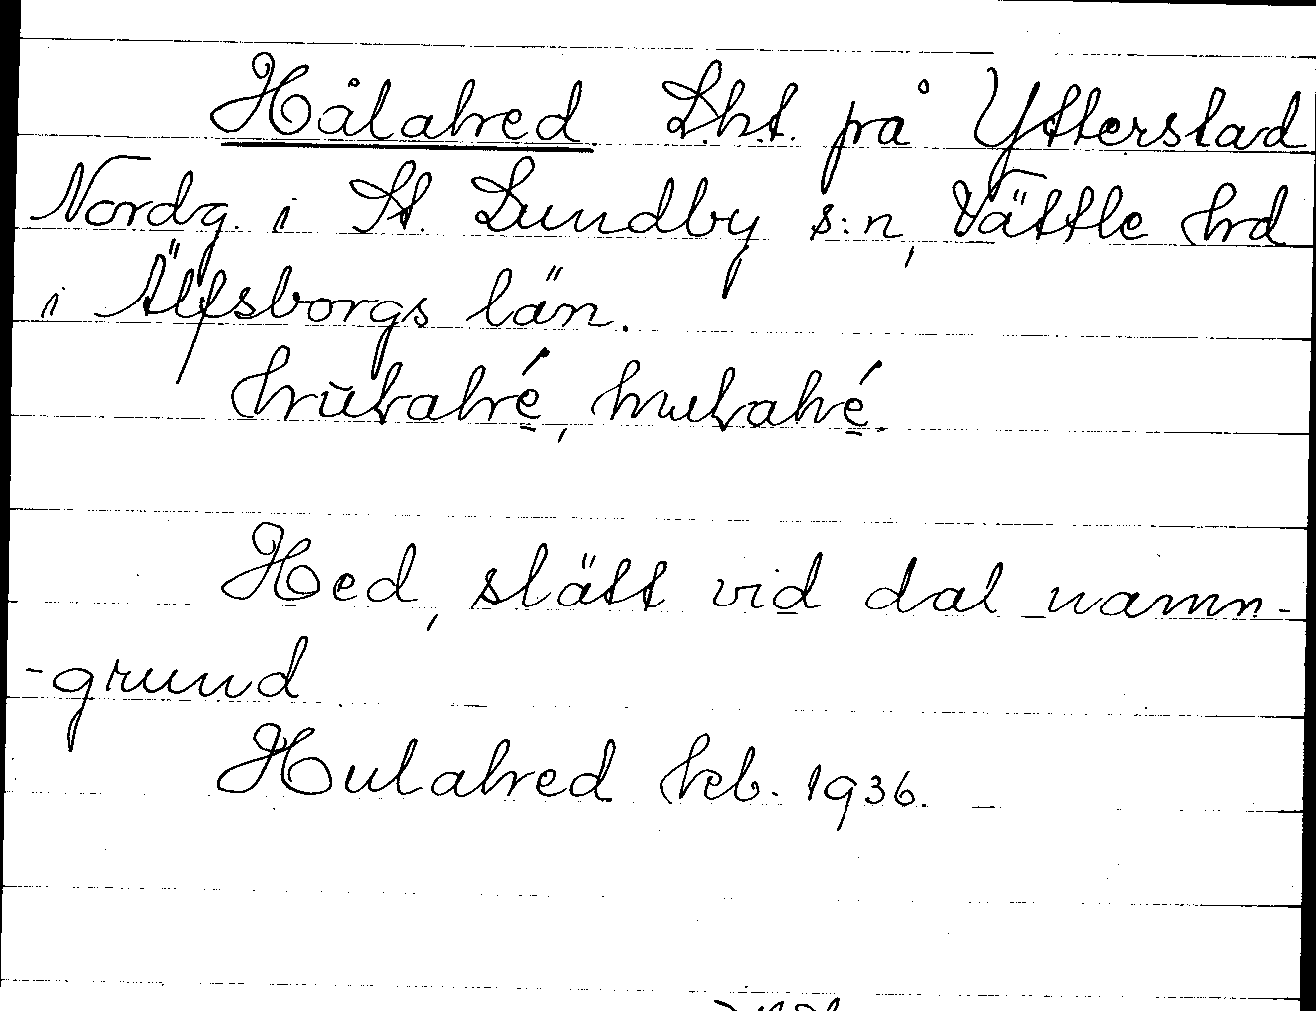 Hålahed Lht. på Ytterstad
Nordg. i St. Lundby s:n, Vättle hd
i Älfsborgs län.
Hed, slätt vid dal namn-
-grund
Hulahed heb. 1936.